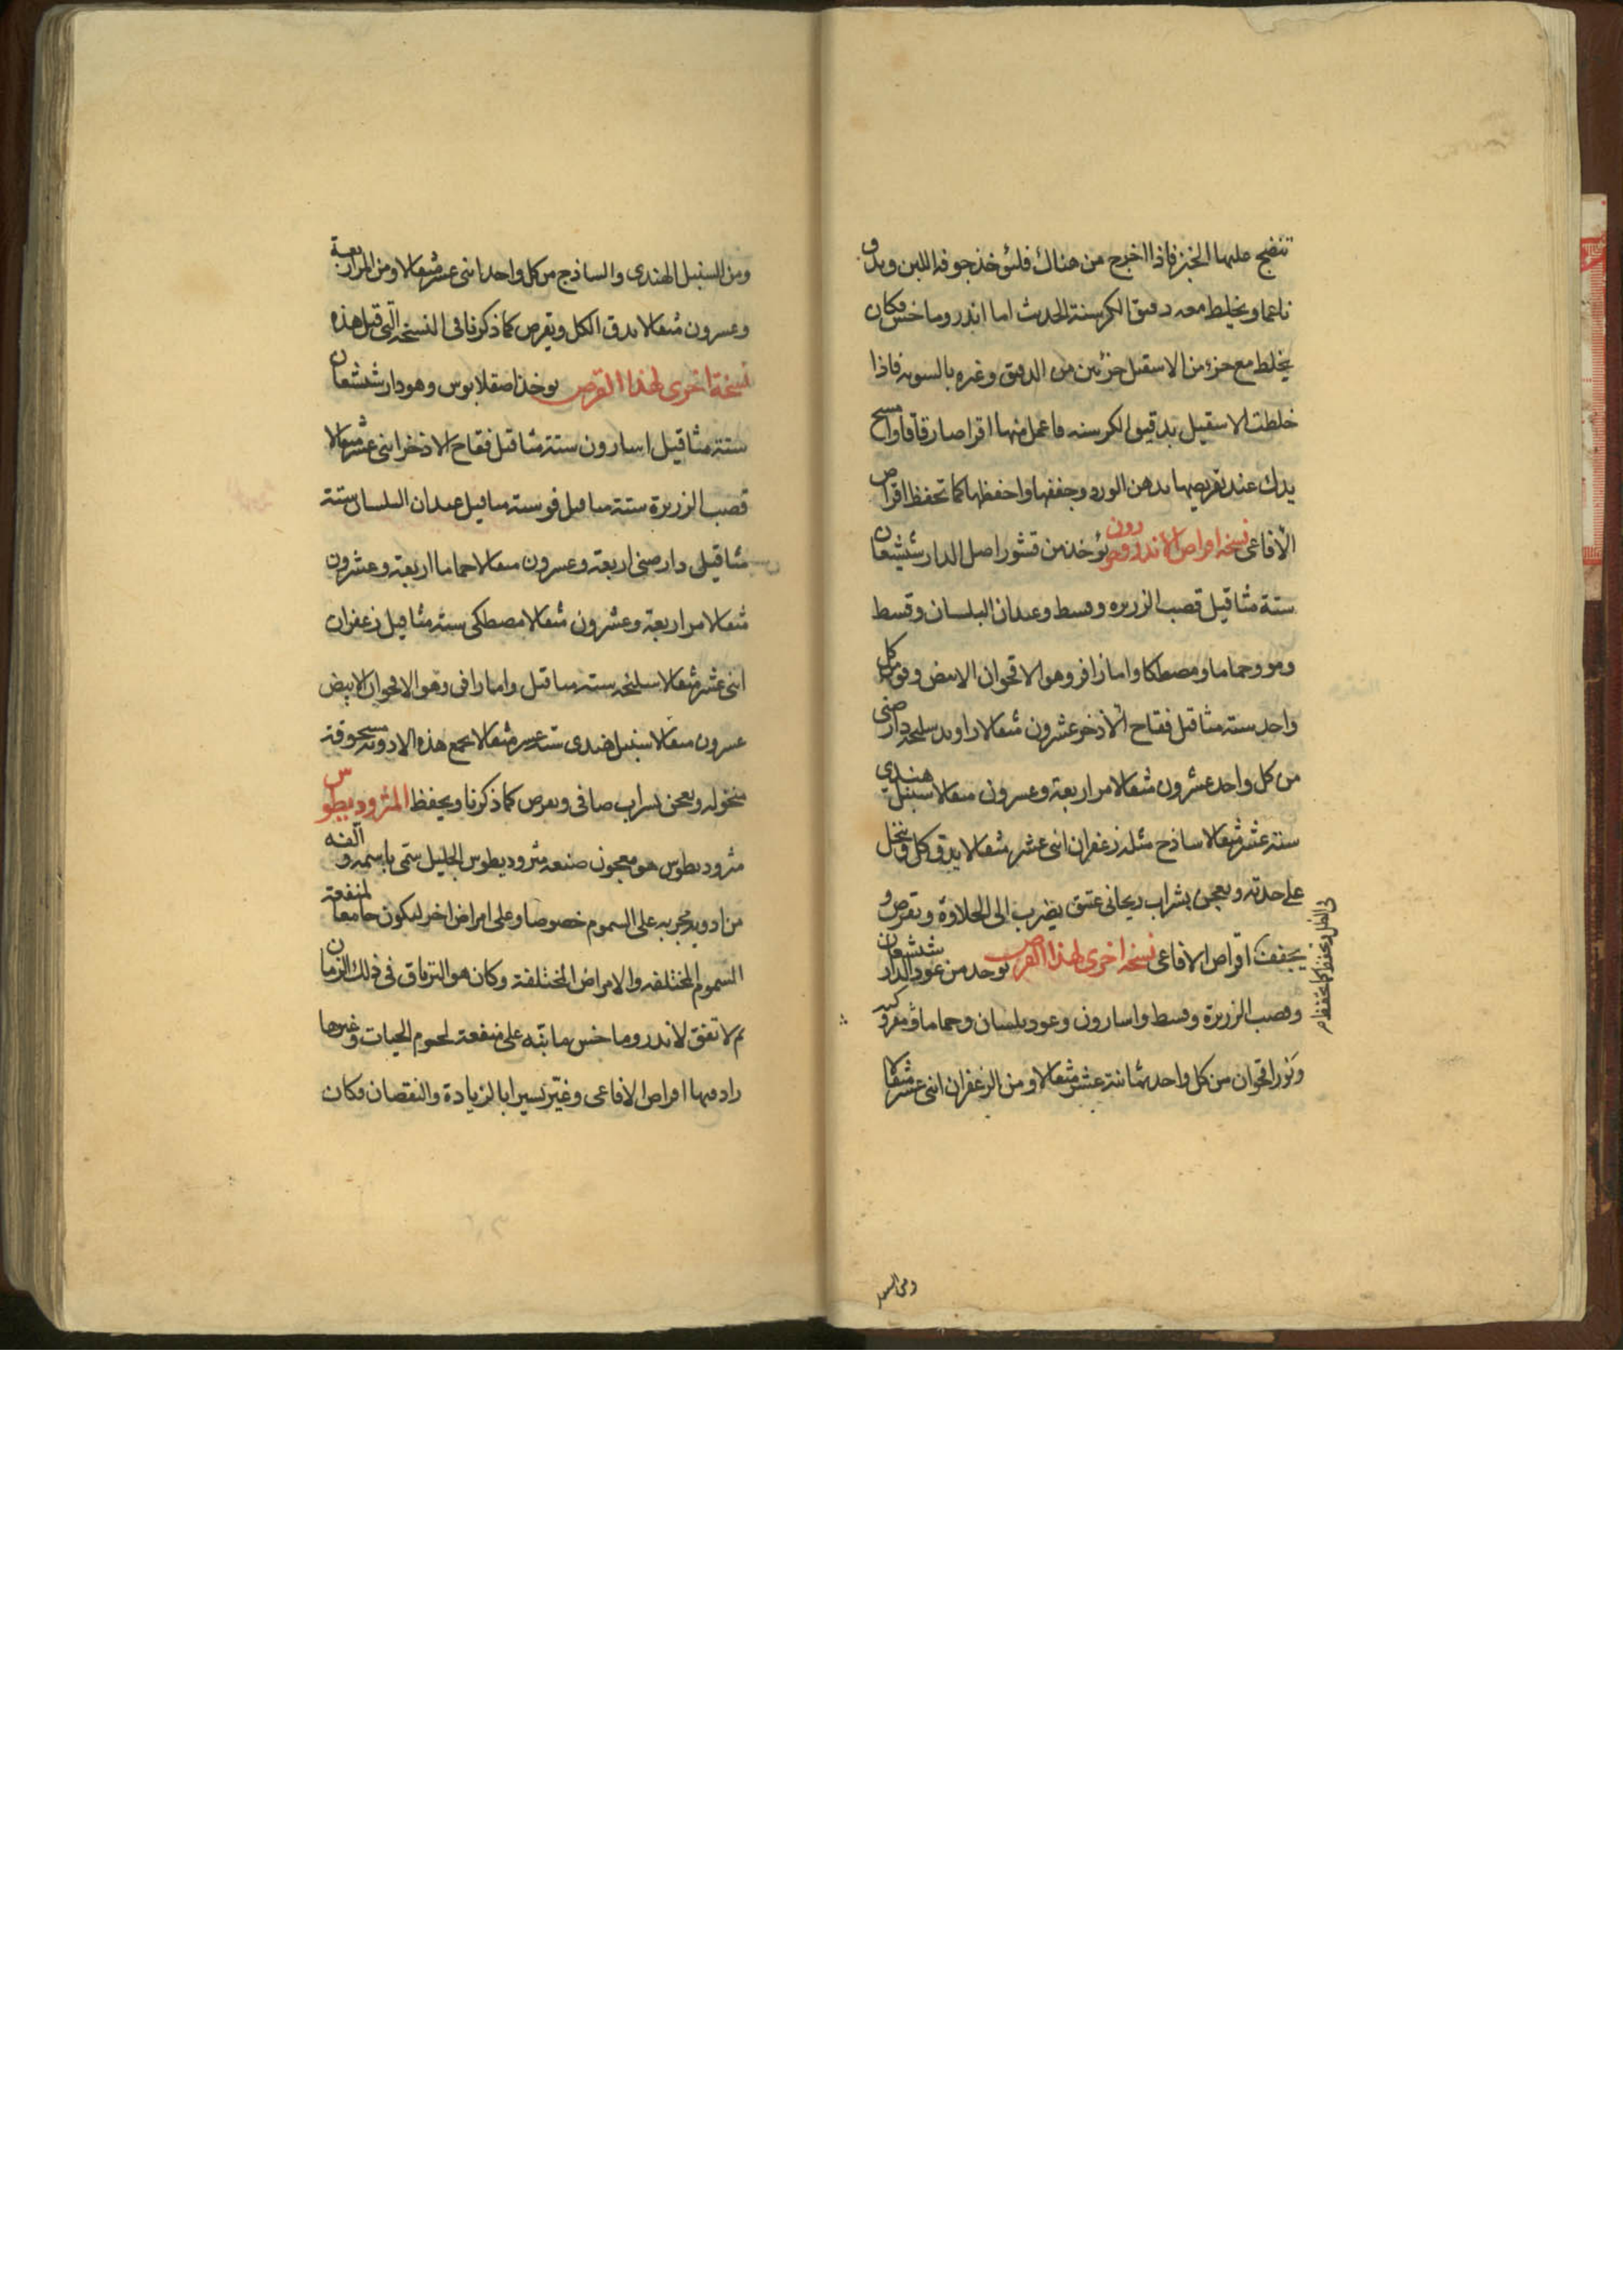 تنضج عليها الخبز فاذا اخرج من هناك فليؤخذ جوفه اللين ويدق
ناعما ويخلط معه دقيق الكرسنة الحديث اما اندروماخس فكان
يخلط مع جزء من الاسقيل جزئين من الدقيق وغيره بالسويه فاذا
خلطت الاسقيل بدقيق الكرسنه فاعمل منها اقراصا رقاقا وامسح
يدك عند تقريصها بدهن الورد وجففها واحفظها كما تحفظ اقراص
الافاعى نسخه اقراص الاندروخورون يؤخذ من قشور اصل الدارشيشعان
ستة مثاقيل قصب الزريره وقسط وعيدان البلسان وقسط
ومو وحماما ومصطكا واماراقو وهو الاقحوان الابيض وفو من كل
واحد ستة مثاقيل فقاح الاذخر عشرون مثقالا راوند سليخه دارصينى
من كل واحد عشرون مثقالا مر اربعة وعشرون مثقالا سنبل هندي
ستة عشر مثقالا ساذج مثله زعفران اثنى عشر مثقالا يدق كل وينخل
على حدته ويعجن بشراب ريحانى عتيق يضرب الى الحلاوة ويقرص و
يجفف فى الظل ويحفظ كما يحفظ
اقراص الافاعى نسخه اخرى لهذا القرص يوخد من عود الدار شيشعان
وقصب الزريرة وقسط واسارون وعود بلسان وحماما ومو
وبزر اقحوان من كل واحد ثمانية عشر مثقالا ومن الزعفران اثنى عشر مثقالا
ومن السنبل
ومن السنبل الهندى والساذج من كل واحد اثنى عشر مثقالا ومن المر اربعة
وعشرون مثقالا يدق الكل ويقرص كما ذكرنا فى النسخة التى قبل هذه
نسخة اخرى لهذا القرص يوخذ اصقلابوس وهو دار شيشعان
ستة مثاقيل اسارون ستة مثاقيل فقاح الاذخر اثنى عشر مثقالا
قصب الزريرة ستة مثاقيل فو ستة مثاقيل عيدان البلسان ستة
مثاقيل دارصينى اربعة وعشرون مثقالا حماما اربعة وعشرون
مثقالا مر اربعة وعشرون مثقالا مصطكى ستة مثاقيل زعفران
اثنى عشر مثقالا سليخه ستة مثاقيل واماراقى وهو الاقحوان الابيض
عشرون مثقالا سنبل هندى ستة عشر مثقالا يجمع هذه الادوية مسحوقة
منخوله ويعجن بشراب صافى ويقرص كما ذكرنا ويحفظ المثروديطوس
مثروديطوس هو معجون صنعه مثروديطوس الجليل سمى باسمه والفه
من ادوية مجربه على السموم خصوصا وعلى امراض اخر ليكون جامعا لمنفعة
السموم المختلفه والامراض المختلفة وكان هو الترياق فى ذلك الزمان
ثم لا تفق لاندروماخس ما نبه على منفعة لحوم الحيات وغيرها
زاد فيها اقراص الافاعى وغير يسيرا بالزيادة والنقصان فكان